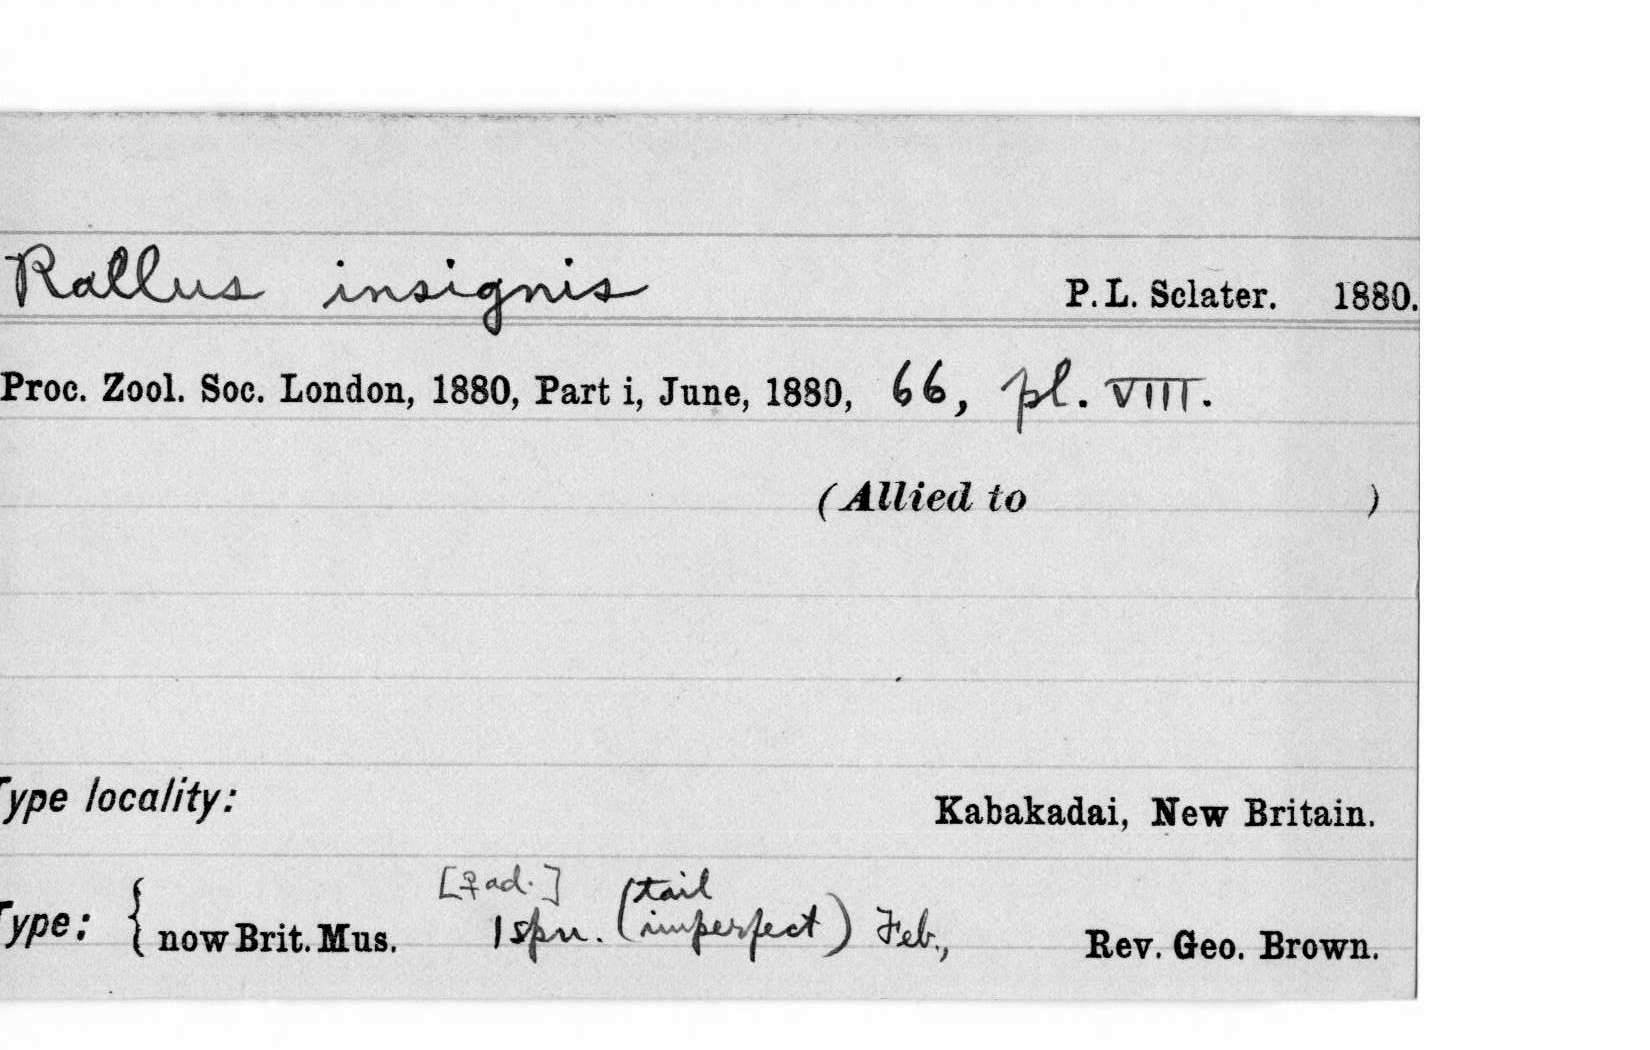 Rallus insignis P. L. Sclater. 1880.
Proc. Zool. Soc. London, 1880, Part i, June, 1880, 66, pl. VIII.
(Allied to )
Type locality: Kabakadai, New Britain.
[♀ ad.] (tail
Type: { now Brit. Mus. 1 spn. imperfect) Feb., Rev. Geo. Brown.